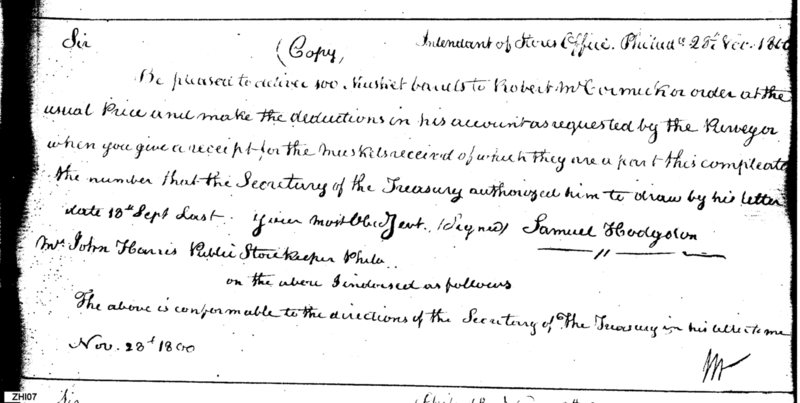 Sir (Copy, Intendant of Stores Office. Philada 28th Nov. 1800
Be pleased to deliver 100 Musket barrels to Robert McCormick or order at the
usual Price and make the deductions in his account as requested by the Purveyor
when you give a receipt for the muskets received of which they are a part this compleats
the number that the Secretary of the Treasury authorized him to draw by his letter
date 18th Sept Last. Your most Obd Servt. (Signed) Samuel Hodgsdon
Mr John Harris Public Storekeeper Phila..
on the above I indorsed as follows
The above is conformable to the directions of the Secretary of The Treasury in his letter to me
Nov. 28th 1800
ZHI07
Sir